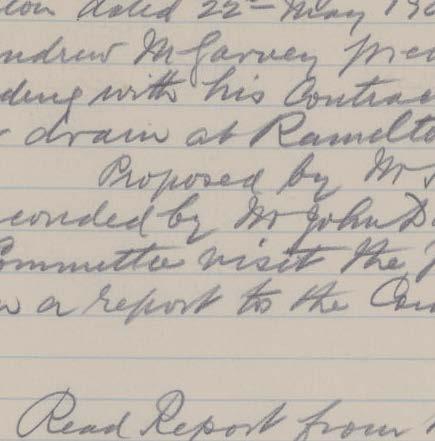 dated 22nd May 19
ndrew McGarvey
ding with his Contrac
drain at Ramelto
Proposed by Mr
conded by Mr John D
Committee visit the
a report to the Cou
Read Report from